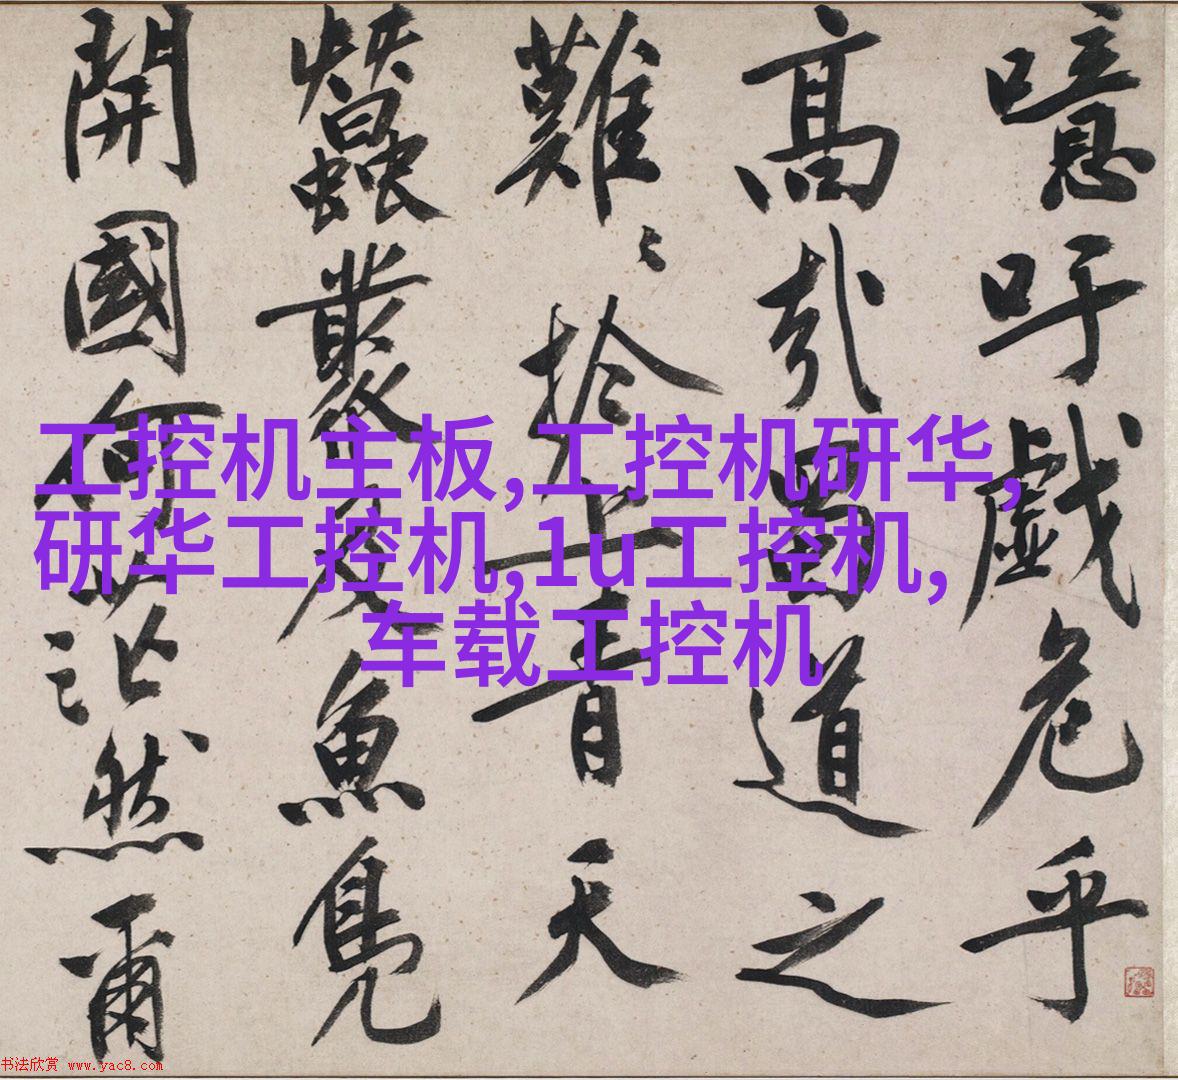 噫吁戯危乎
高哉蜀道之
難〻扵上青天
蠶叢及魚鳧
開國何茫然爾
工控机主板,工控机研华,
研华工控机,1u工控机,
车载工控机
书法欣赏 www.yac8.com